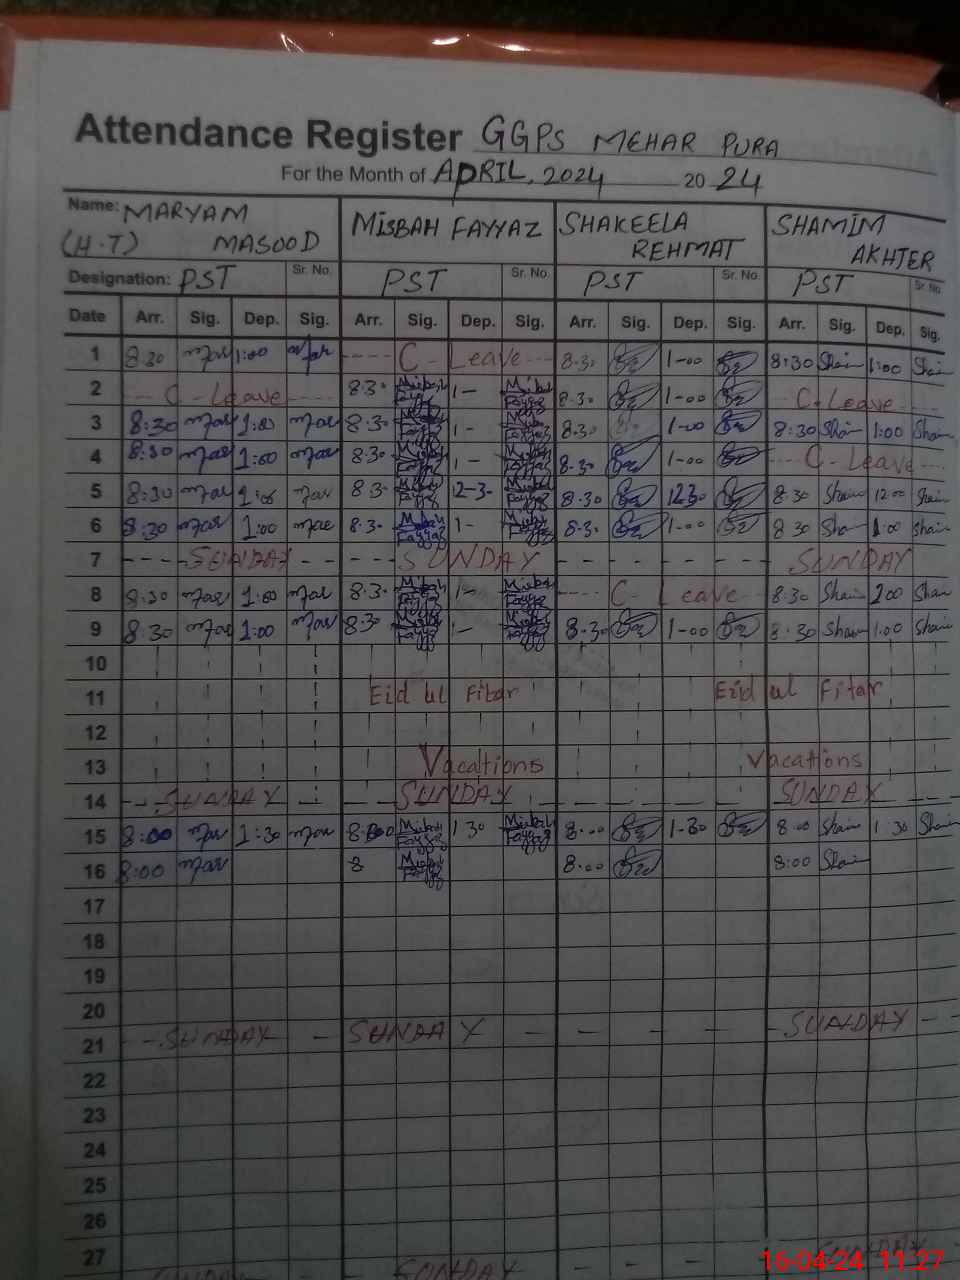 Attendance Register GGPS MEHAR PURA
For the Month of APRIL, 2024 20 24
Name: MARYAM (H.T) MASOOD MISBAH FAYYAZ SHAKEELA REHMAT SHAMIM AKHTER
Designation: PST Sr. No. PST Sr. No. PST Sr. No. PST Sr. No.
Date Arr. Sig. Dep. Sig. Arr. Sig. Dep. Sig. Arr. Sig. Dep. Sig. Arr. Sig. Dep. Sig.
1 8:30 Mar 1:00 Mar C- Leave 8-30 1-00 8:30 Sham 1:00 Sham
2 C- Leave 8:30 Misbah Fayyaz 1- Misbah Fayyaz 8-30 1-00 C- Leave
3 8:30 Mar 1:00 Mar 8:30 Misbah Fayyaz 1- Misbah Fayyaz 8-30 1-00 8:30 Sham 1:00 Sham
4 8:30 Mar 1:00 Mar 8:30 Misbah Fayyaz 1- Misbah Fayyaz 8-30 1-00 C- Leave
5 8:30 Mar Mar 8:30 Misbah Fayyaz 12-30 Misbah Fayyaz 8-30 1230 8:30 Sham 12:00 Sham
6 8:30 Mar 1:00 Mar 8:30 Misbah Fayyaz 1- Misbah Fayyaz 8-30 1-00 8:30 Sham 1:00 Sham
7 SUNDAY SUNDAY SUNDAY
8 8:30 Mar 1:00 Mar 8:30 Misbah Fayyaz 1- Misbah Fayyaz C- Leave 8:30 Sham 1:00 Sham
9 8:30 Mar 1:00 Mar 8:30 Misbah Fayyaz 1- Misbah Fayyaz 8-30 1-00 8:30 Sham 1:00 Sham
10
11 Eid ul Fitar Eid ul Fitar
12
13 Vacations Vacations
14 SUNDAY SUNDAY SUNDAY
15 8:00 Mar 1:30 Mar 8:00 Misbah Fayyaz 1 30 Misbah Fayyaz 8-00 1-30 8:00 Sham 1 30 Sham
16 8:00 Mar 8 Misbah Fayyaz 8-00 8:00 Sham
17
18
19
20
21 SUNDAY SUNDAY SUNDAY
22
23
24
25
26
27 SUNDAY
SUNDAY SUNDAY
16-04-24 11:27